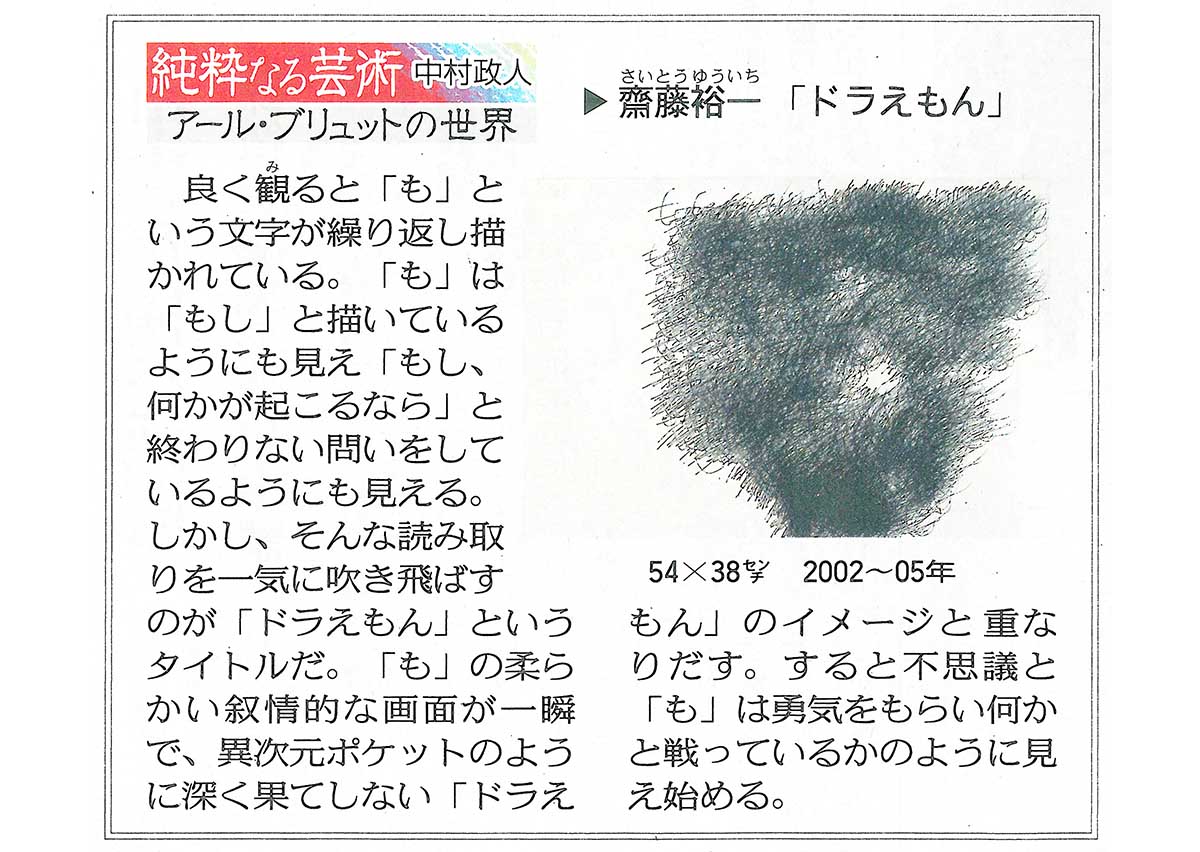 純粋なる芸術 中村政人
アール・ブリュットの世界
さいとうゆういち
▶齋藤裕一 「ドラえもん」
み
良く観ると「も」と
いう文字が繰り返し描
かれている。「も」は
「もし」と描いている
ようにも見え「もし、
何かが起こるなら」と
終わりない問いをして
いるようにも見える。
しかし、そんな読み取
りを一気に吹き飛ばす
のが「ドラえもん」という
タイトルだ。「も」の柔ら
かい叙情的な画面が一瞬
で、異次元ポケットのよう
に深く果てしない「ドラえ
54×38センチ 2002〜05年
もん」のイメージと重な
りだす。すると不思議と
「も」は勇気をもらい何か
と戦っているかのように見
え始める。